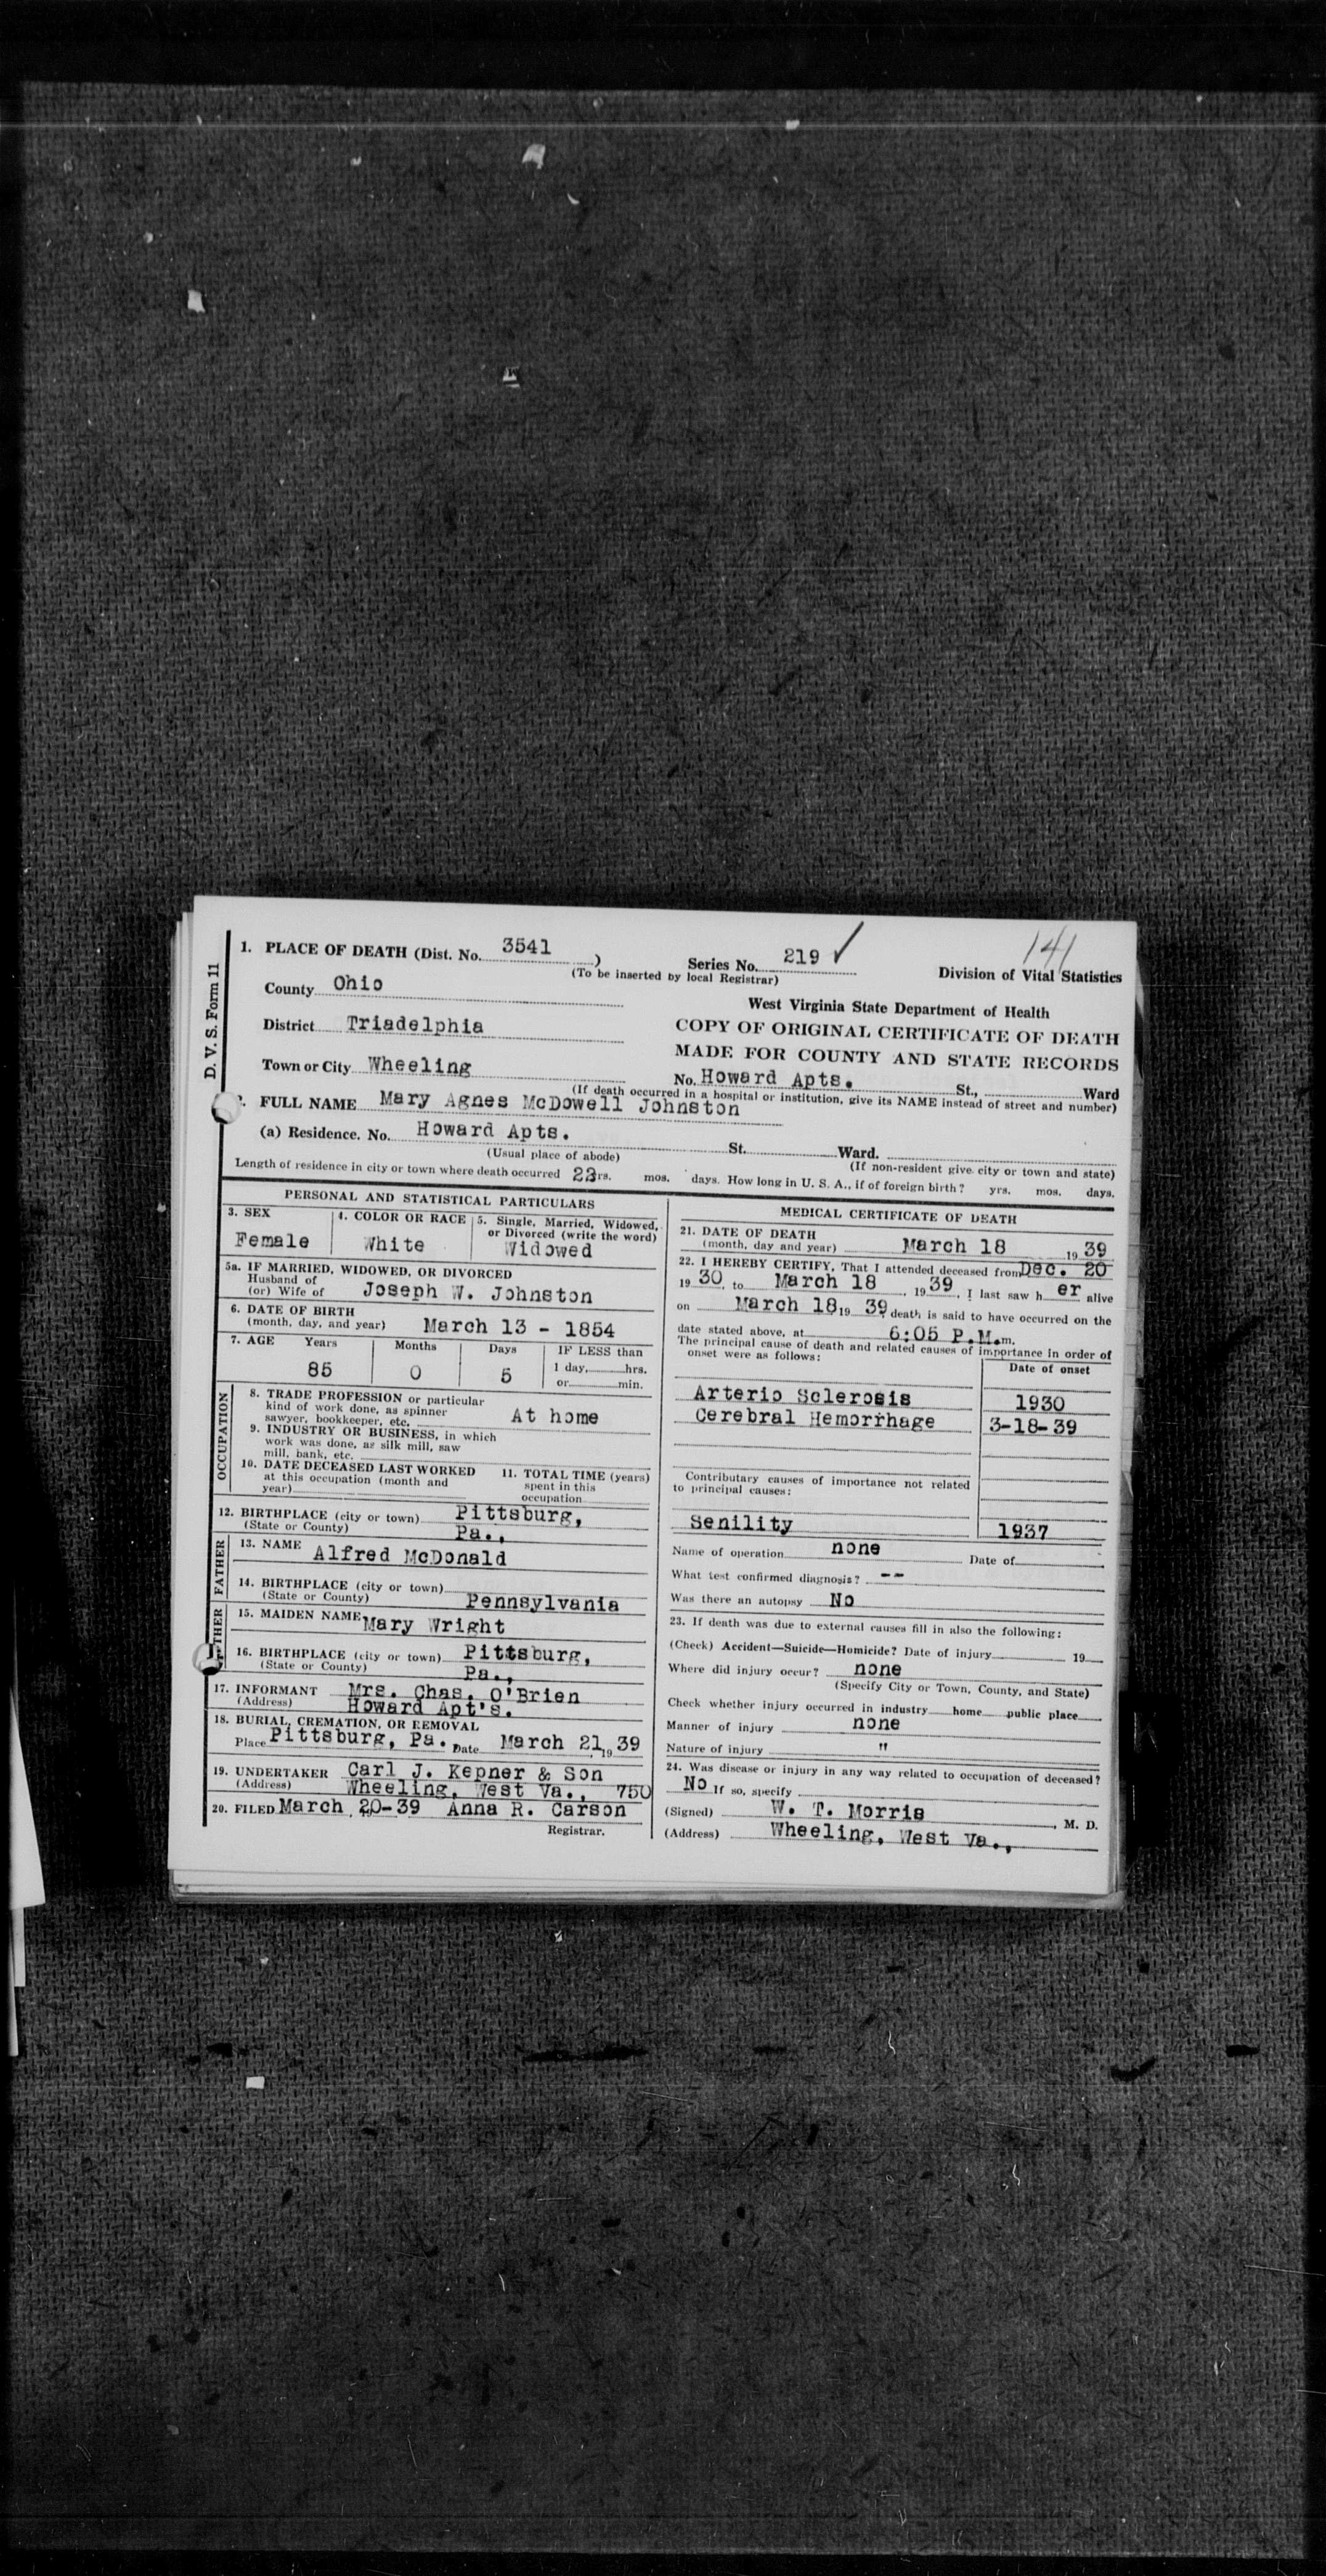 D. V. S. Form 11
1. PLACE OF DEATH (Dist. No. 3541 )
Series No. 219 ✓
141
(To be inserted by local Registrar)
Division of Vital Statistics
County Ohio
West Virginia State Department of Health
District Triadelphia
COPY OF ORIGINAL CERTIFICATE OF DEATH
MADE FOR COUNTY AND STATE RECORDS
Town or City Wheeling
No. Howard Apts. St., Ward
(If death occurred in a hospital or institution, give its NAME instead of street and number)
FULL NAME Mary Agnes McDowell Johnston
(a) Residence. No. Howard Apts. St. Ward.
(Usual place of abode) (If non-resident give city or town and state)
Length of residence in city or town where death occurred 23rs. mos. days. How long in U. S. A., if of foreign birth? yrs. mos. days.
PERSONAL AND STATISTICAL PARTICULARS
3. SEX
Female
4. COLOR OR RACE
White
5. Single, Married, Widowed,
or Divorced (write the word)
Widowed
5a. IF MARRIED, WIDOWED, OR DIVORCED
Husband of
(or) Wife of Joseph W. Johnston
6. DATE OF BIRTH
(month, day, and year) March 13 - 1854
7. AGE Years Months Days IF LESS than
85 0 5 1 day, hrs.
or min.
OCCUPATION
8. TRADE PROFESSION or particular
kind of work done, as spinner
sawyer, bookkeeper, etc. At home
9. INDUSTRY OR BUSINESS, in which
work was done, as silk mill, saw
mill, bank, etc.
10. DATE DECEASED LAST WORKED
at this occupation (month and
year)
11. TOTAL TIME (years)
spent in this
occupation
12. BIRTHPLACE (city or town) Pittsburg,
(State or County) Pa.,
FATHER
13. NAME Alfred McDonald
14. BIRTHPLACE (city or town)
(State or County) Pennsylvania
15. MAIDEN NAME Mary Wright
16. BIRTHPLACE (city or town) Pittsburg,
(State or County) Pa.,
17. INFORMANT Mrs. Chas. O'Brien
(Address) Howard Apt's.
18. BURIAL, CREMATION, OR REMOVAL
Place Pittsburg, Pa. Date March 21, 19 39
19. UNDERTAKER Carl J. Kepner & Son
(Address) Wheeling, West Va., 750
20. FILED March 20-39 Anna R. Carson
Registrar.
MEDICAL CERTIFICATE OF DEATH
21. DATE OF DEATH
(month, day and year) March 18 19 39
22. I HEREBY CERTIFY, That I attended deceased from Dec. 20
19 30, to March 18, 19 39, I last saw h er alive
on March 18 19 39, death is said to have occurred on the
date stated above, at 6:05 P.M.m.
The principal cause of death and related causes of importance in order of
onset were as follows:
Date of onset
Arterio Sclerosis 1930
Cerebral Hemorrhage 3-18-39
Contributary causes of importance not related
to principal causes:
Senility 1937
Name of operation none Date of
What test confirmed diagnosis? --
Was there an autopsy No
23. If death was due to external causes fill in also the following:
(Check) Accident—Suicide—Homicide? Date of injury 19
Where did injury occur? none
(Specify City or Town, County, and State)
Check whether injury occurred in industry home public place
Manner of injury none
Nature of injury "
24. Was disease or injury in any way related to occupation of deceased?
No If so, specify
(Signed) W. T. Morris , M. D.
(Address) Wheeling, West Va.,